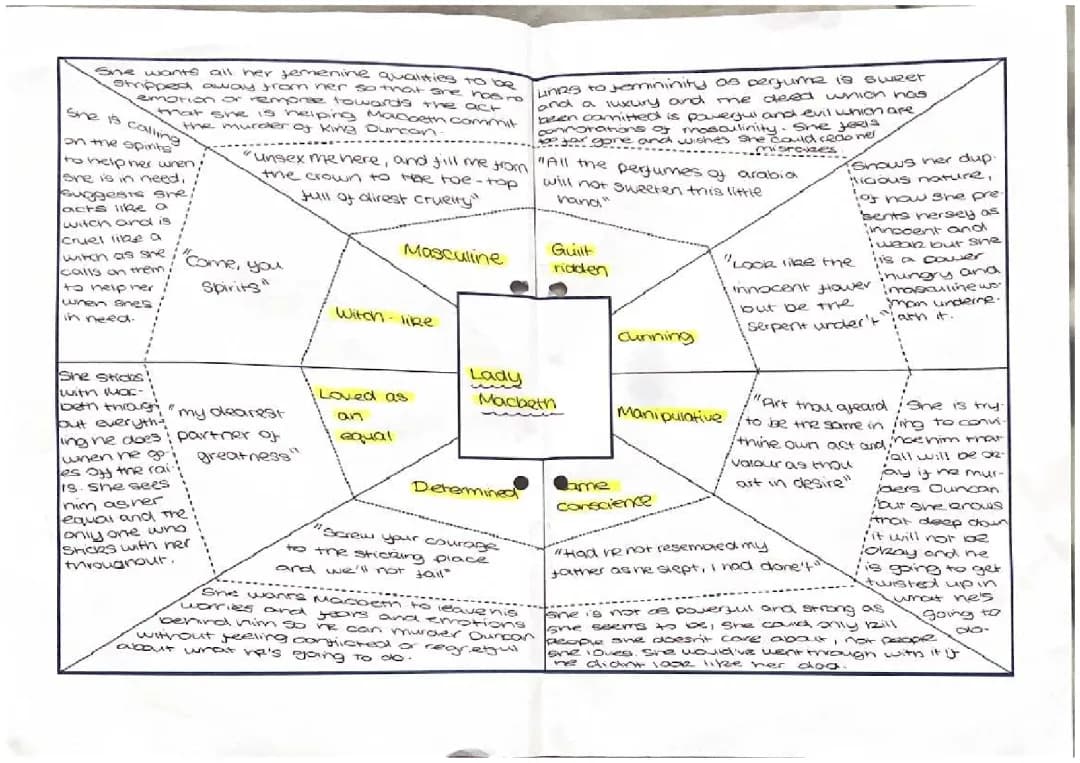 She wants all her femenine qualities to be
stripped away from her so that she has no
emotion or remorse towards the act
that she is helping Macbeth commit
the murder of King Duncan.
"unsex me here, and fill me from
the crown to the toe-top
full of direst cruelty"
Masculine
links to femininity as perfume is sweet
and a luxury and the deed which has
been comitted is powerful and evil which are
connotations of masculinity. She feels
too far gone and wishes she could redo her
mistakes.
"All the perfumes of arabia
will not sweeten this little
hand"
Guilt
ridden
She is calling
on the spirits
to help her when
she is in need,
suggests she
acts like a
witch and is
cruel like a
witch as she
calls on them
to help her
when shes
in need.
"Come, you
Spirits"
Witch-like
Shows her dup-
licious nature,
of how she pre-
sents herself as
innocent and
weak but she
is a power
hungry and
masculine wo-
man underne-
ath it.
"Look like the
innocent flower
but be the
serpent under't"
Cunning
Lady
Macbeth
She sticks
with Mac-
beth through
out everyth-
ing he does
when he go-
es off the rai-
ls. She sees
him as her
equal and the
only one who
sticks with her
throughout.
"my dearest
partner of
greatness"
Loved as
an
equal
Manipulative
"Art thou afeard
to be the same in
thine own act and
valour as thou
art in desire"
She is try-
ing to convi-
nce him that
all will be ok-
ay if he mur-
ders Duncan
but she knows
that deep down
it will not be
okay and he
is going to get
twisted up in
what he's
going to
do.
Determined
"Screw your courage
to the sticking place
and we'll not fail"
She wants Macbeth to leave his
worries and fears and emotions
behind him so he can murder Duncan
without feeling conflicted or regretful
about what he's going to do.
conscience
"Had he not resembled my
father as he slept, I had done't"
She is not as powerful and strong as
she seems to be, she could only kill
people she doesn't care about, not people
she loves. She would've went through with it if
he didnt look like her dad.